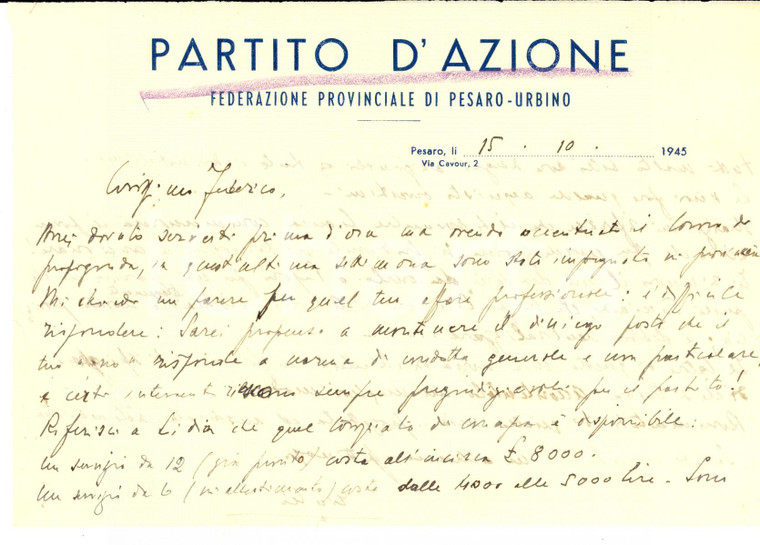 PARTITO D'AZIONE
FEDERAZIONE PROVINCIALE DI PESARO-URBINO
Pesaro, li 15 . 10 . 1945
Via Cavour, 2
Federico,
Avrei dovuto scriverti prima d'ora ma avendo il lavoro di
propaganda, in quest'ultima settimana sono stato impegnato in provincia
Mi chiedi un parere per quel tuo affare professionale: è difficile
rispondere: Sarei propenso a mantenere il diniego posto che il
tuo risponde a norma di condotta generale e non particolare,
e certi interventi sempre pregiudizievoli per il partito!
Riferisci a Lidia che quel è disponibile:
Un servizio da 12 (già pronto) costa all'incirca £ 8000.
Un servizio da 6 (in allestimento) costa dalle 4000 alle 5000 lire - Sono